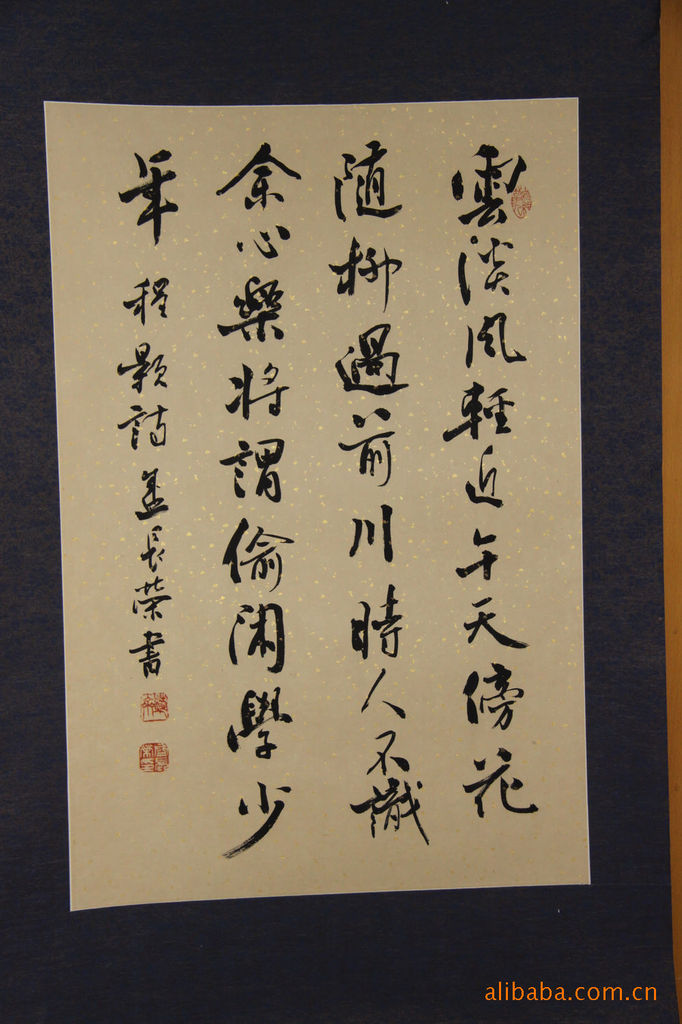 雲淡風輕近午天傍花
随柳過前川時人不識
余心樂将謂偷閑學少
年 程颢詩 長荣書
alibaba.com.cn